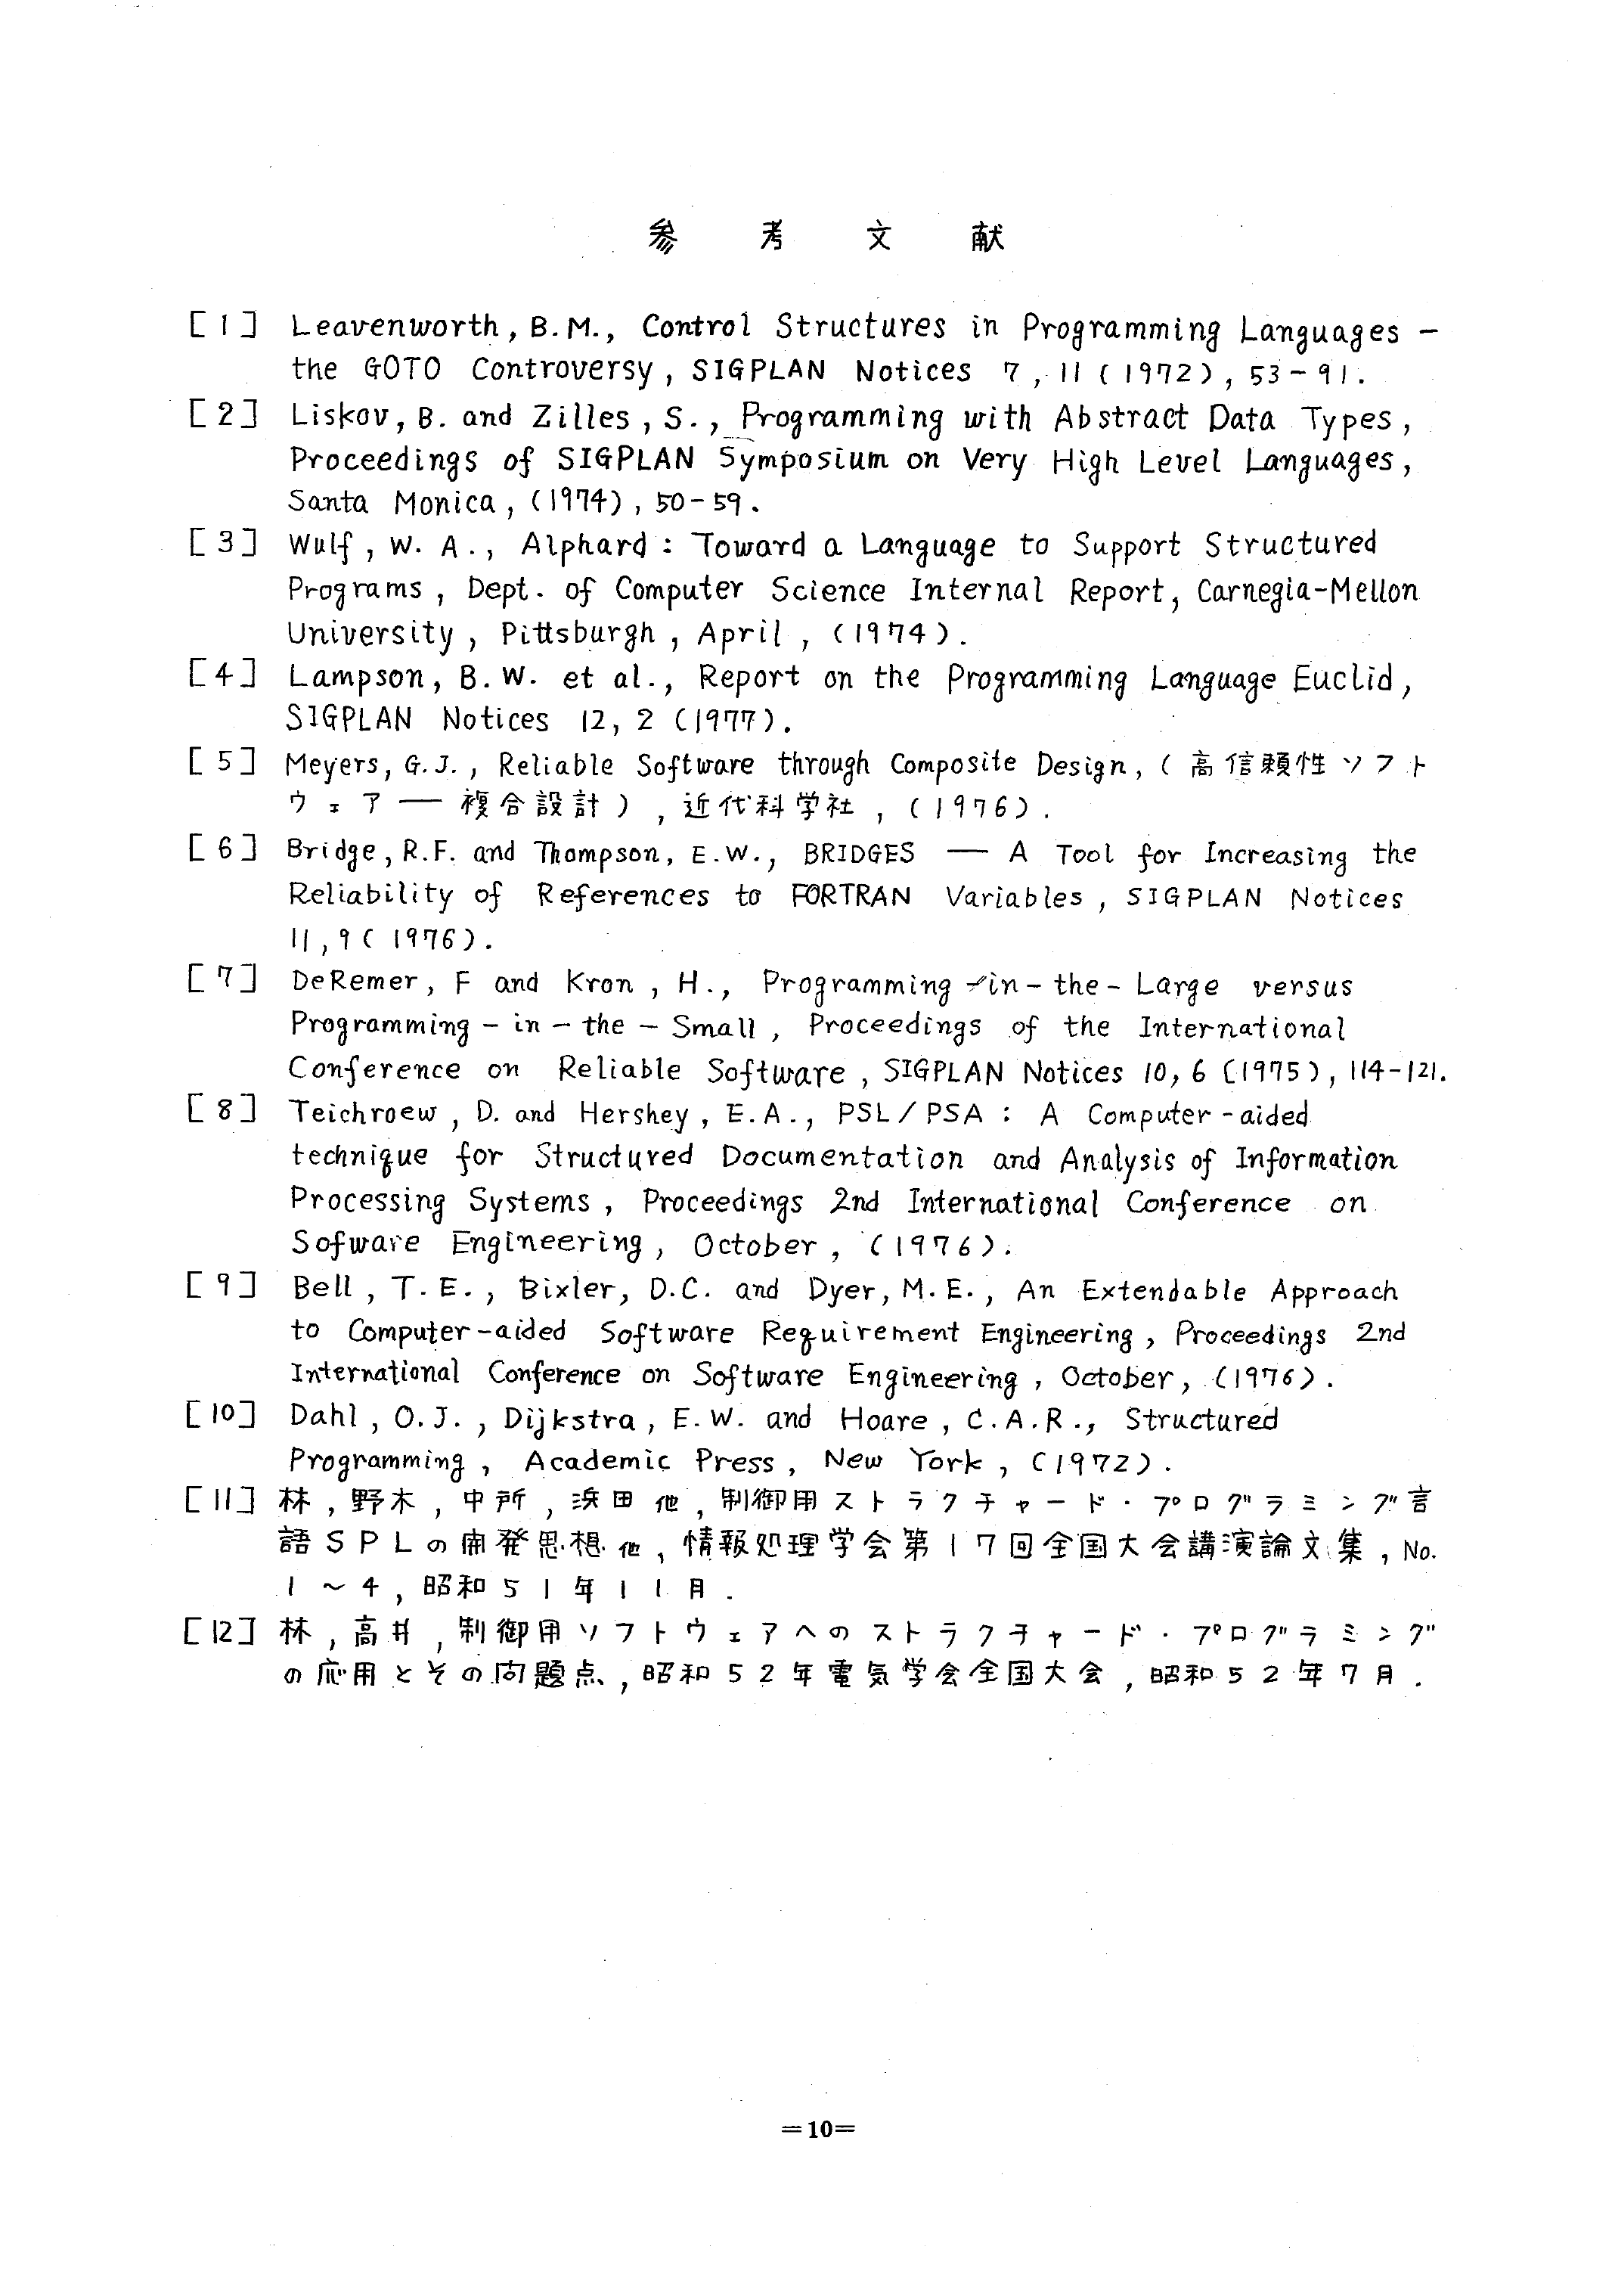 参考文献
[1] Leavenworth, B.M., Control Structures in Programming Languages -
the GOTO Controversy, SIGPLAN Notices 7, 11 (1972), 53-91.
[2] Liskov, B. and Zilles, S., Programming with Abstract Data Types,
Proceedings of SIGPLAN Symposium on Very High Level Languages,
Santa Monica, (1974), 50-59.
[3] Wulf, W. A., Alphard: Toward a Language to Support Structured
Programs, Dept. of Computer Science Internal Report, Carnegia-Mellon
University, Pittsburgh, April, (1974).
[4] Lampson, B.W. et al., Report on the Programming Language Euclid,
SIGPLAN Notices 12, 2 (1977).
[5] Meyers, G.J., Reliable Software through Composite Design, (高信頼性ソフト
ウェア — 複合設計), 近代科学社, (1976).
[6] Bridge, R.F. and Thompson, E.W., BRIDGES — A Tool for Increasing the
Reliability of References to FORTRAN Variables, SIGPLAN Notices
11, 9 (1976).
[7] DeRemer, F and Kron, H., Programming-in-the-Large versus
Programming-in-the-Small, Proceedings of the International
Conference on Reliable Software, SIGPLAN Notices 10, 6 (1975), 114-121.
[8] Teichroew, D. and Hershey, E.A., PSL/PSA: A Computer-aided
technique for Structured Documentation and Analysis of Information
Processing Systems, Proceedings 2nd International Conference on
Sofware Engineering, October, (1976).
[9] Bell, T.E., Bixler, D.C. and Dyer, M.E., An Extendable Approach
to Computer-aided Software Requirement Engineering, Proceedings 2nd
International Conference on Software Engineering, October, (1976).
[10] Dahl, O.J., Dijkstra, E.W. and Hoare, C.A.R., Structured
Programming, Academic Press, New York, (1972).
[11] 林, 野木, 中所, 浜田 他, 制御用ストラクチャード・プログラミング言
語SPLの開発思想 他, 情報処理学会第17回全国大会講演論文集, No.
1～4, 昭和51年11月.
[12] 林, 高井, 制御用ソフトウェアへのストラクチャード・プログラミング
の応用とその問題点, 昭和52年電気学会全国大会, 昭和52年7月.
=10=